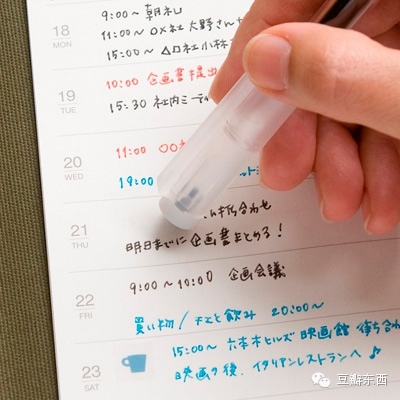 18
MON
9:00〜 朝礼
11:00〜 ○×社 大野さん
15:00〜 △□社 小林
19
TUE
10:00 企画書提出
15:30 社内ミーティ
20
WED
11:00 ○○
19:00
21
THU
打ち合わせ
明日までに企画書まとめる!
9:00〜10:00 企画会議
22
FRI
買い物/ 飲み 20:00〜
23
SAT
15:00〜 六本木ヒルズ 映画館 待ち合わ
映画の後、イタリアンレストランへ♪
豆瓣东西